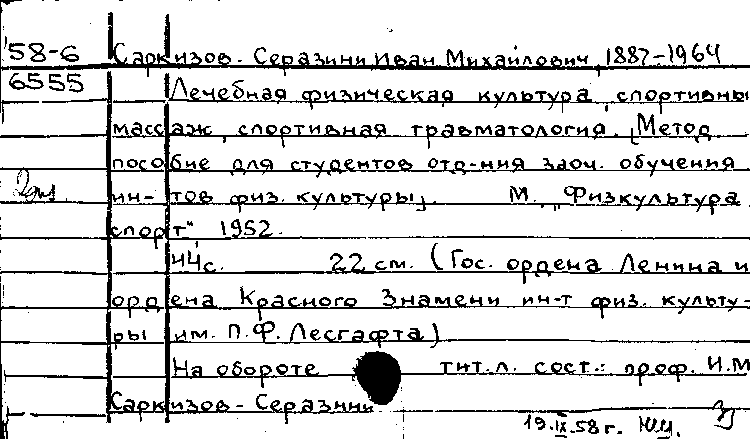 58-6 Саркизов-Серазини Иван Михайлович, 1887-1964
6555 Лечебная физическая культура, спортивны
массаж, спортивная травматология. [Метод
пособие для студентов отд-ния заоч. обучения
ин-тов физ. культуры]. М., „Физкультура
спорт", 1952.
44с. 22 см. (Гос. ордена Ленина и
ордена Красного Знамени ин-т физ. культу-
ры им. П.Ф. Лесгафта)
На обороте тит.л. сост.: проф. И.М
Саркизов-Серазини
19.IX.58г.